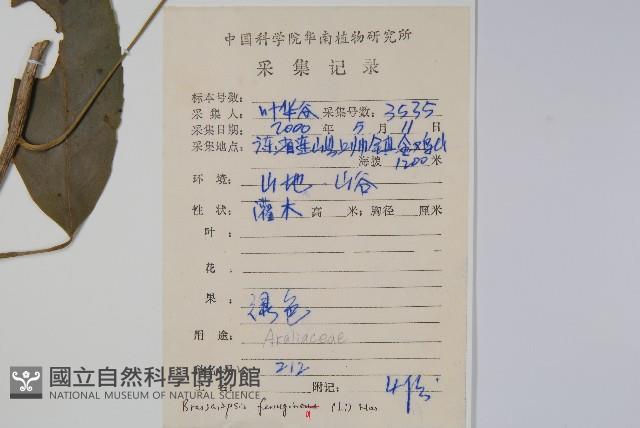 中国科学院华南植物研究所
采集记录
标本号数:
采集人: 叶华谷 采集号数: 3535
采集日期: 2000 年 5 月 11 日
采集地点: 山
海拔 1200 米
环境: 山地 山谷
性状: 灌木 高 米; 胸径 厘米
叶:
花:
果: 绿色
用途: Araliaceae
212
附记: 4份
Brassaiopsis ferruginea (Li) Hoo
國立自然科學博物館
NATIONAL MUSEUM OF NATURAL SCIENCE